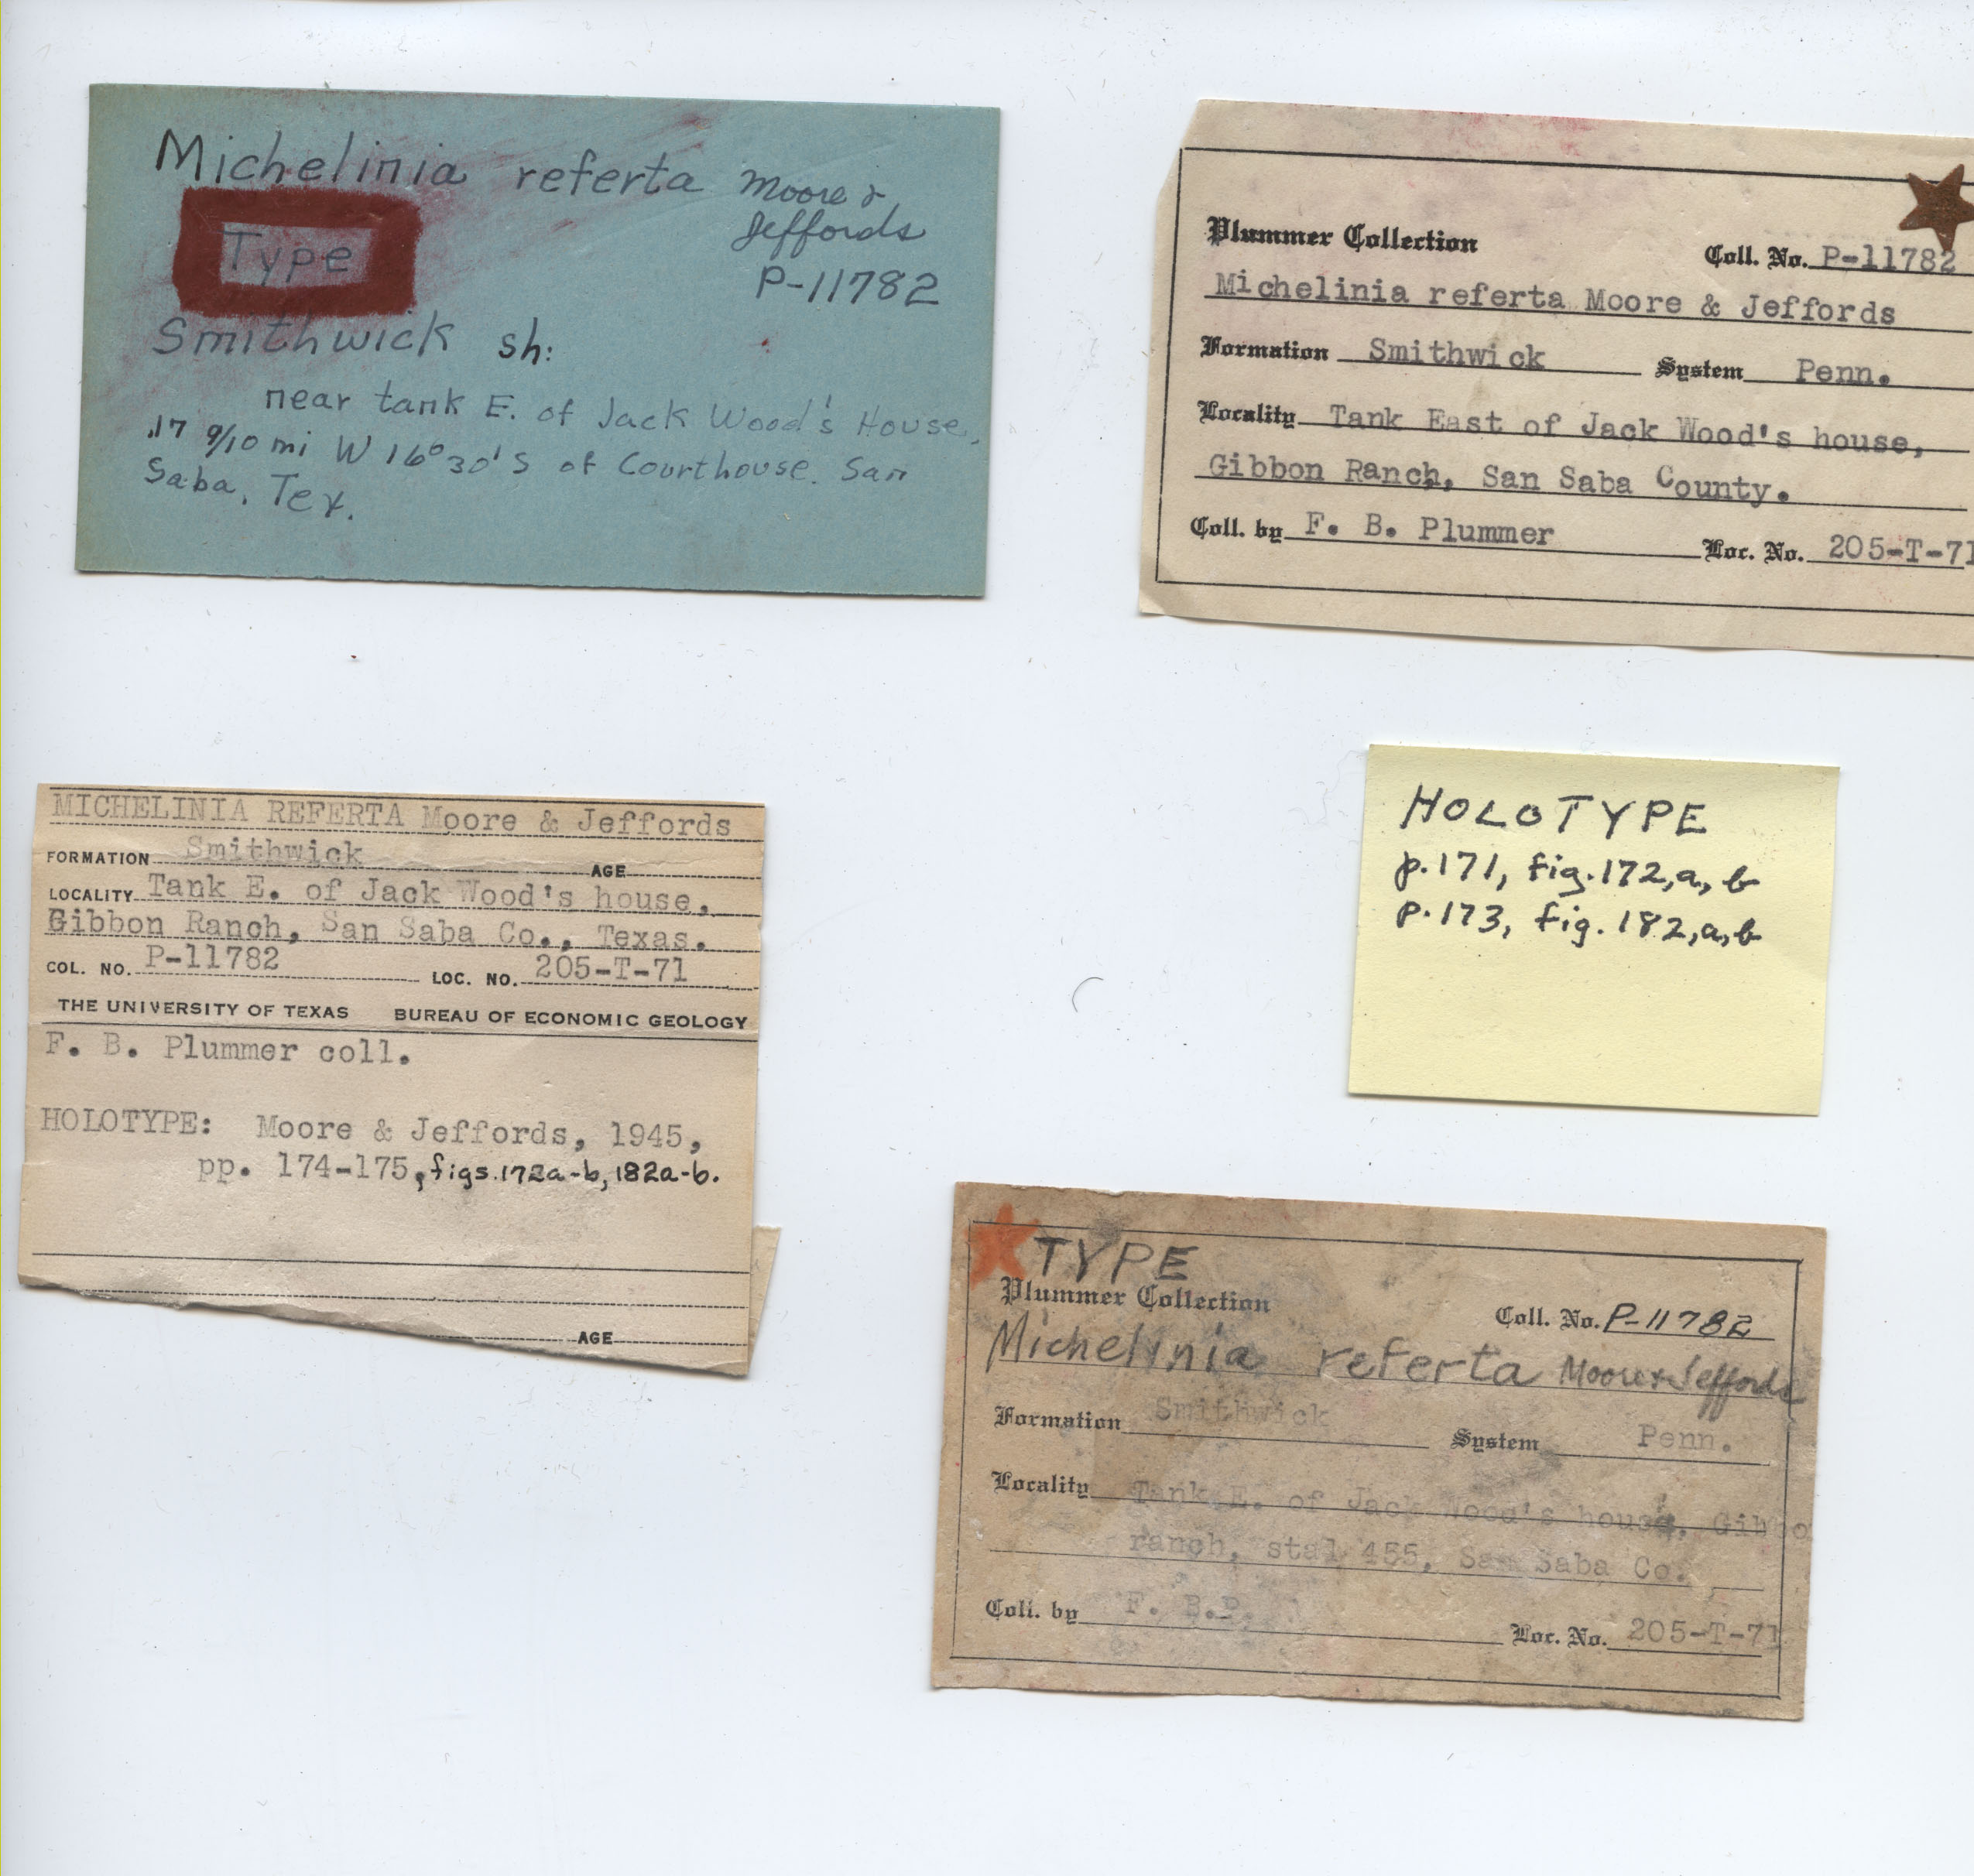 Michelinia referta Moore &
Jeffords
Type
P-11782
Smithwick sh:
near tank E. of Jack Wood's House,
17 9/10 mi W 16°30' S of Courthouse. San
Saba, Tex.
Plummer Collection
Coll. No. P-11782
Michelinia referta Moore & Jeffords
Formation Smithwick System Penn.
Locality Tank East of Jack Wood's house,
Gibbon Ranch, San Saba County.
Coll. by F. B. Plummer Loc. No. 205-T-71
MICHELINIA REFERTA Moore & Jeffords
FORMATION Smithwick AGE
LOCALITY Tank E. of Jack Wood's house,
Gibbon Ranch, San Saba Co., Texas.
COL. NO. P-11782 LOC. NO. 205-T-71
THE UNIVERSITY OF TEXAS BUREAU OF ECONOMIC GEOLOGY
F. B. Plummer coll.
HOLOTYPE: Moore & Jeffords, 1945,
pp. 174-175, figs. 172a-b, 182a-b.
AGE
HOLOTYPE
p. 171, fig. 172, a, b
p. 173, fig. 182, a, b
TYPE
Plummer Collection
Coll. No. P-11782
Michelinia referta Moore & Jeffords
Formation Smithwick System Penn.
Locality Tank E. of Jack Wood's house, Gibbo
ranch, stal 455, San Saba Co.
Coll. by F. B.P. Loc. No. 205-T-71